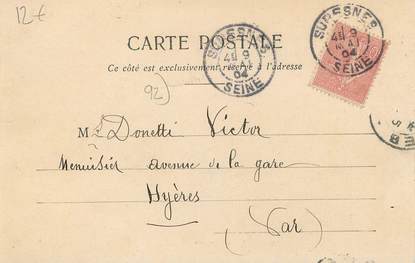 12 €
CARTE POSTALE
Ce côté est exclusivement réservé à l'adresse
SURESNES
4E 9
04
SEINE
SURESNES
4E 9
MAI
04
SEINE
92)
M. Donetti Victor
Menuisier avenue de la gare
Hyères
(Var)